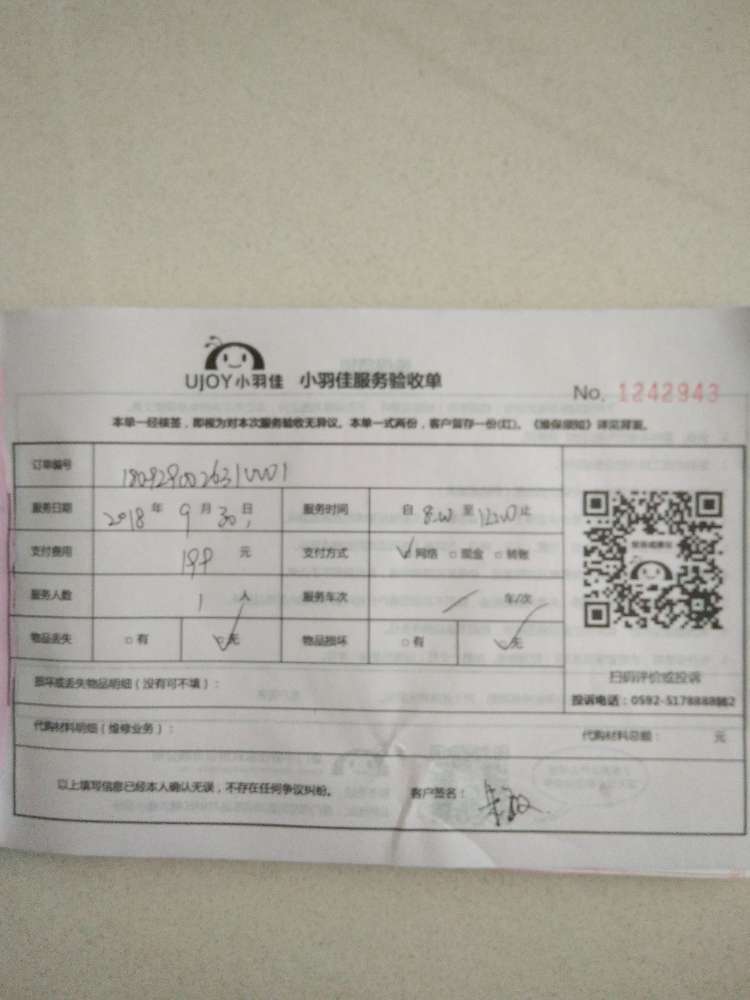 UJOY小羽佳 小羽佳服务验收单
No. 1242943
本单一经核签，即视为对本次服务验收无异议。本单一式两份，客户留存一份(红)。《维保须知》详见背面。
订单编号
服务日期 2018 年 9 月 30 日 服务时间 自 8:00 至 12:00 止
支付费用 199 元 支付方式 网络 现金 转账
服务人数 1 人 服务车次 车/次
物品丢失 有 无 物品损坏 有 无
扫码评价或投诉
损坏或丢失物品明细（没有可不填）：
代购材料明细（维修业务）： 代购材料总额： 元
以上填写信息已经本人确认无误，不存在任何争议纠纷。 客户签名：